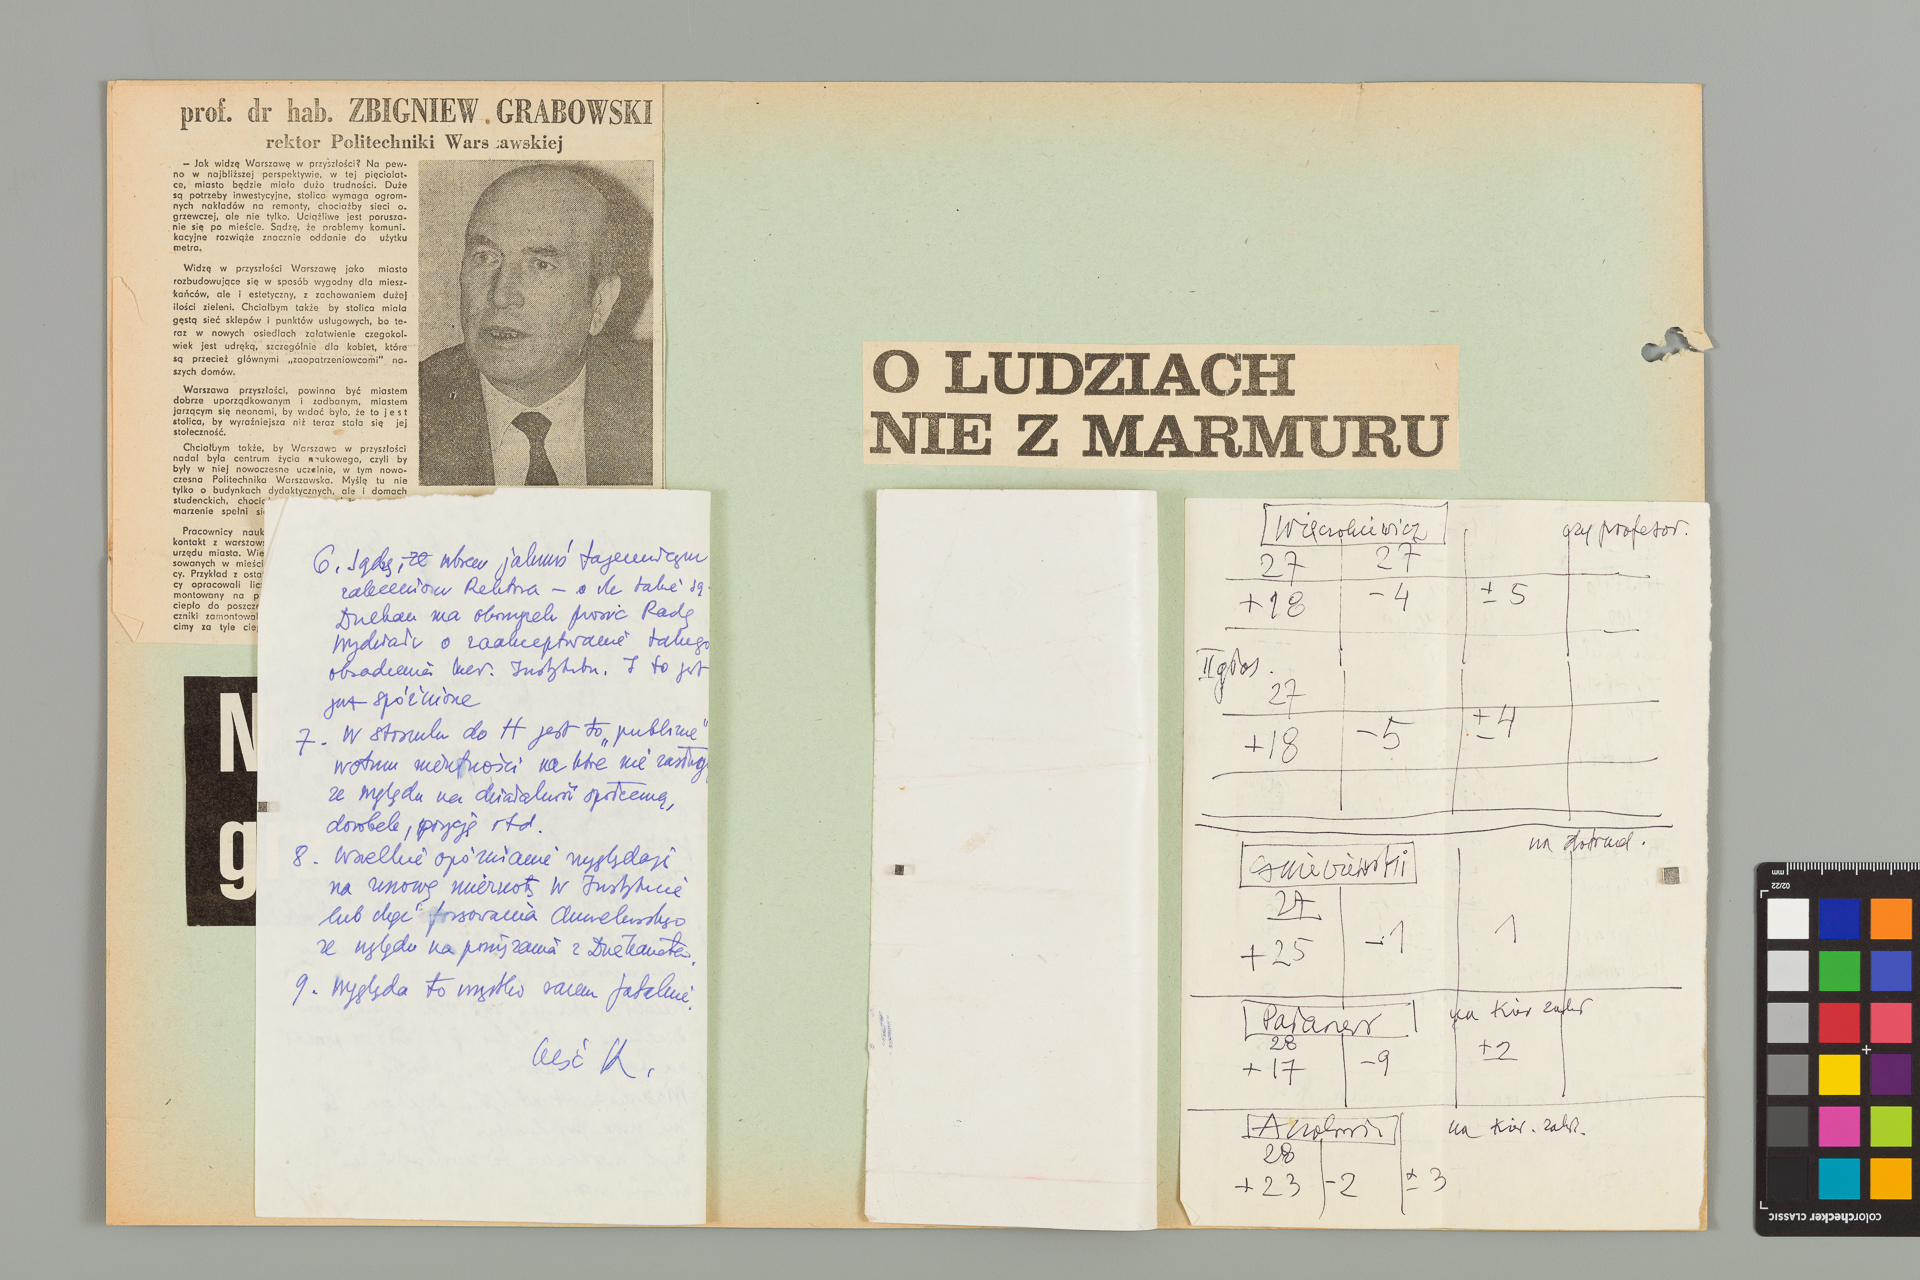 prof. dr hab. ZBIGNIEW GRABOWSKI
rektor Politechniki Warszawskiej
— Jak widzę Warszawę w przyszłości? Na pew-
no w najbliższej perspektywie, w tej pięciolat-
ce, miasto będzie miało dużo trudności. Duże
są potrzeby inwestycyjne, stolica wymaga ogrom-
nych nakładów na remonty, chociażby sieci o-
grzewczej, ale nie tylko. Uciążliwe jest porusza-
nie się po mieście. Sądzę, że problemy komuni-
kacyjne rozwiąże znacznie oddanie do użytku
metra.
Widzę w przyszłości Warszawę jako miasto
rozbudowujące się w sposób wygodny dla miesz-
kańców, ale i estetyczny, z zachowaniem dużej
ilości zieleni. Chciałbym także by stolica miała
gęstą sieć sklepów i punktów usługowych, bo te-
raz w nowych osiedlach załatwienie czegokol-
wiek jest udręką, szczególnie dla kobiet, które
są przecież głównymi „zaopatrzeniowcami” na-
szych domów.
Warszawa przyszłości, powinna być miastem
dobrze uporządkowanym i zadbanym, miastem
jarzącym się neonami, by widać było, że to jest
stolica, by wyraźniejsza niż teraz stała się jej
stołeczność.
Chciałbym także, by Warszawa w przyszłości
nadal była centrum życia naukowego, czyli by
były w niej nowoczesne uczelnie, w tym nowo-
czesna Politechnika Warszawska. Myślę tu nie
tylko o budynkach dydaktycznych, ale i domach
studenckich, choci
marzenie spełni si
Pracownicy nauk
kontakt z warszaws
urzędu miasta. Wie
sowanych w mieści
cy. Przykład z osta
cy opracowali lic
montowany na p
ciepło do poszcze
czniki zamontowal
cimy za tyle cie
N
g
6. Sądzę, że wbrew jakimś tajemniczym
zaleceniom Rektora – o ile takie są
Dziekan ma obowiązek prosić Radę
Wydziału o zaakceptowanie takiego
obsadzenia kier. Instytutu. I to jest
już spóźnione
7. W stosunku do H jest to „publiczne”
wotum nieufności na które nie zasługuje
ze względu na działalność społeczną,
dorobek, pozycję itd.
8. Wszelkie opóźnianie wyglądają
na zmowę miernoty w Instytucie
lub chęć forsowania
ze względu na powiązania z Dziekanatem.
9. Wygląda to wszystko razem fatalnie.
Cześć K.
O LUDZIACH
NIE Z MARMURU
Więckiewicz
czy profesor.
27 27
+18 -4 ± 5
II głos.
27
+18 -5 ± 4
na docent.
27
+25 -1 1
na Kier zakł
28
+17 -9 ±2
na Kier. zakł.
28
+23 -2 ± 3
mm
02/22
colorchecker CLASSIC